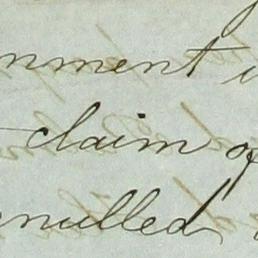 nment i
claim of
nnulled